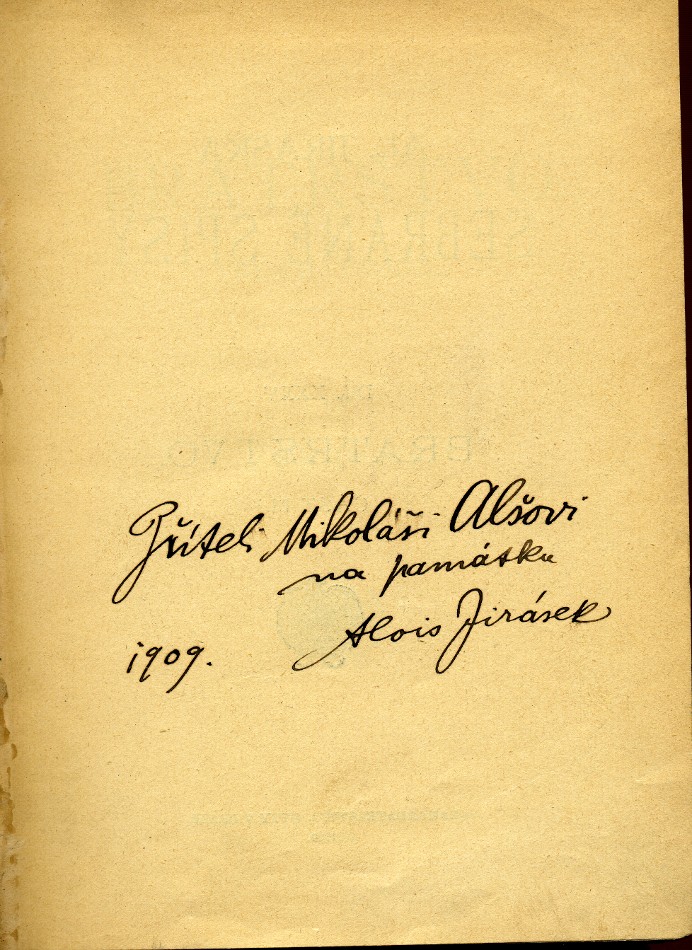 Příteli Mikoláši Alšovi
na památku
Alois Jirásek
1909.